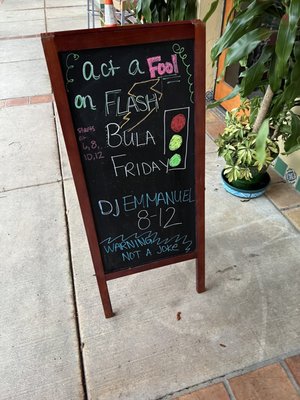 act a Fool
on FLASH
starts
@
6, 8,
10, 12
BULA
FRIDAY
DJ EMMANUEL
8-12
WARNING
NOT A JOKE